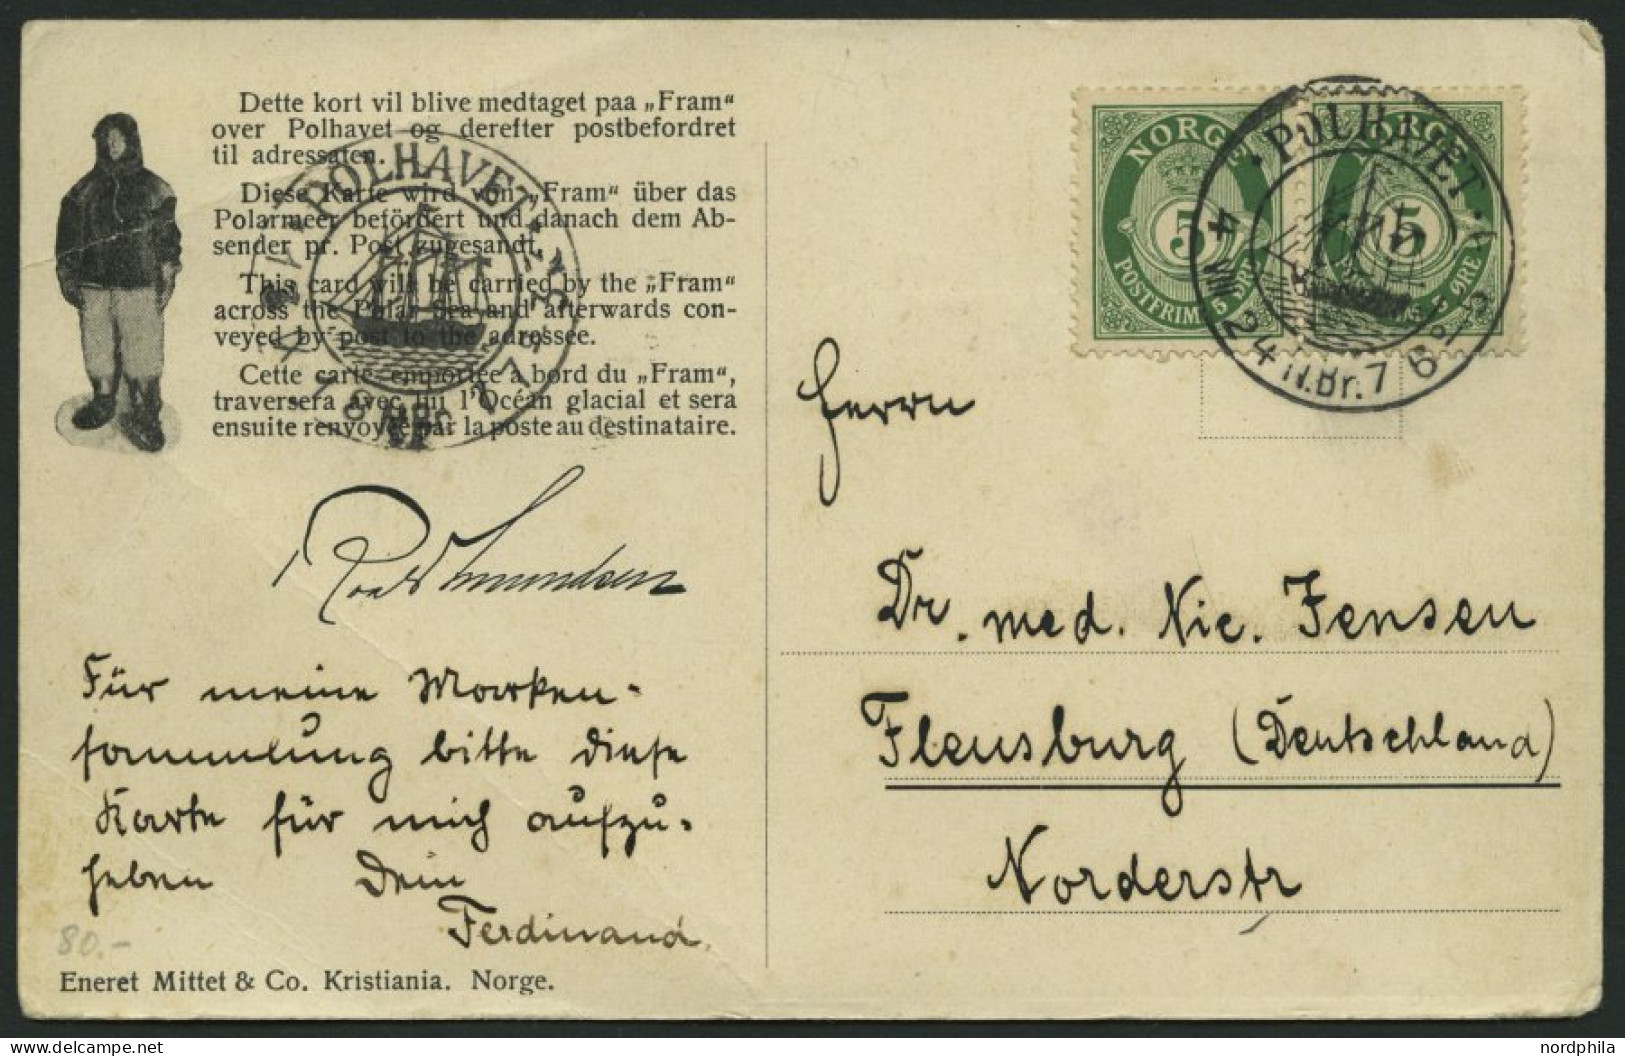 Dette kort vil blive medtaget paa „Fram“
over Polhavet og derefter postbefordret
til adressaten.
Diese Karte wird von „Fram“ über das
Polarmeer befördert und danach dem Ab-
sender pr. Post zugesandt.
This card will be carried by the „Fram“
across the Polar Sea and afterwards con-
veyed by post to the adressee.
Cette carte, emportée à bord du „Fram“,
traversera avec lui l'Océan glacial et sera
ensuite renvoyée par la poste au destinataire.
POLHAVET
Roald Amundsen
Für meine Marken-
sammlung bitte diese
Karte für mich aufzu-
heben Dein
Ferdinand.
80.-
Eneret Mittet & Co. Kristiania. Norge.
NORGE
5
POSTFRIM. 5 ØRE
NORGE
5
ØRE
POLHAVET
4 VIII 24 N.Br. 76
Herrn
Dr. med. Nic. Jensen
Flensburg (Deutschland)
Norderstr
nordphila
www.delcampe.net